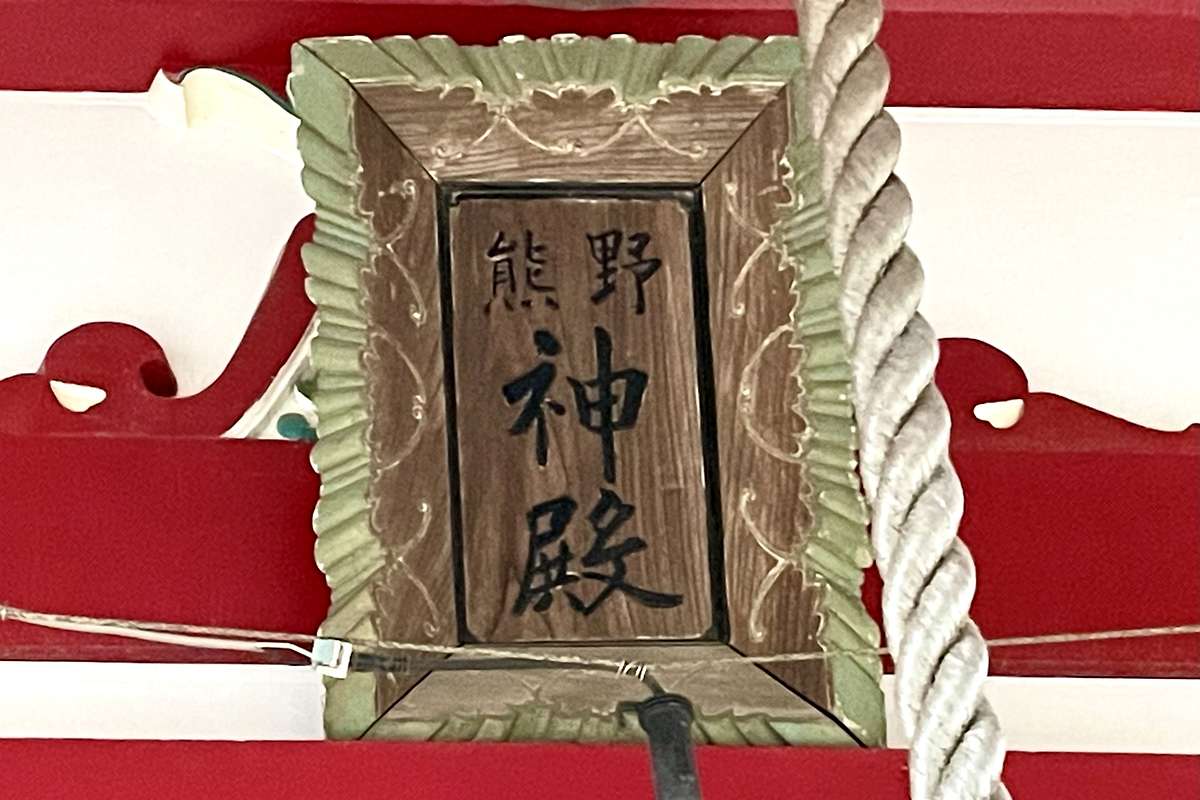 熊野
神殿